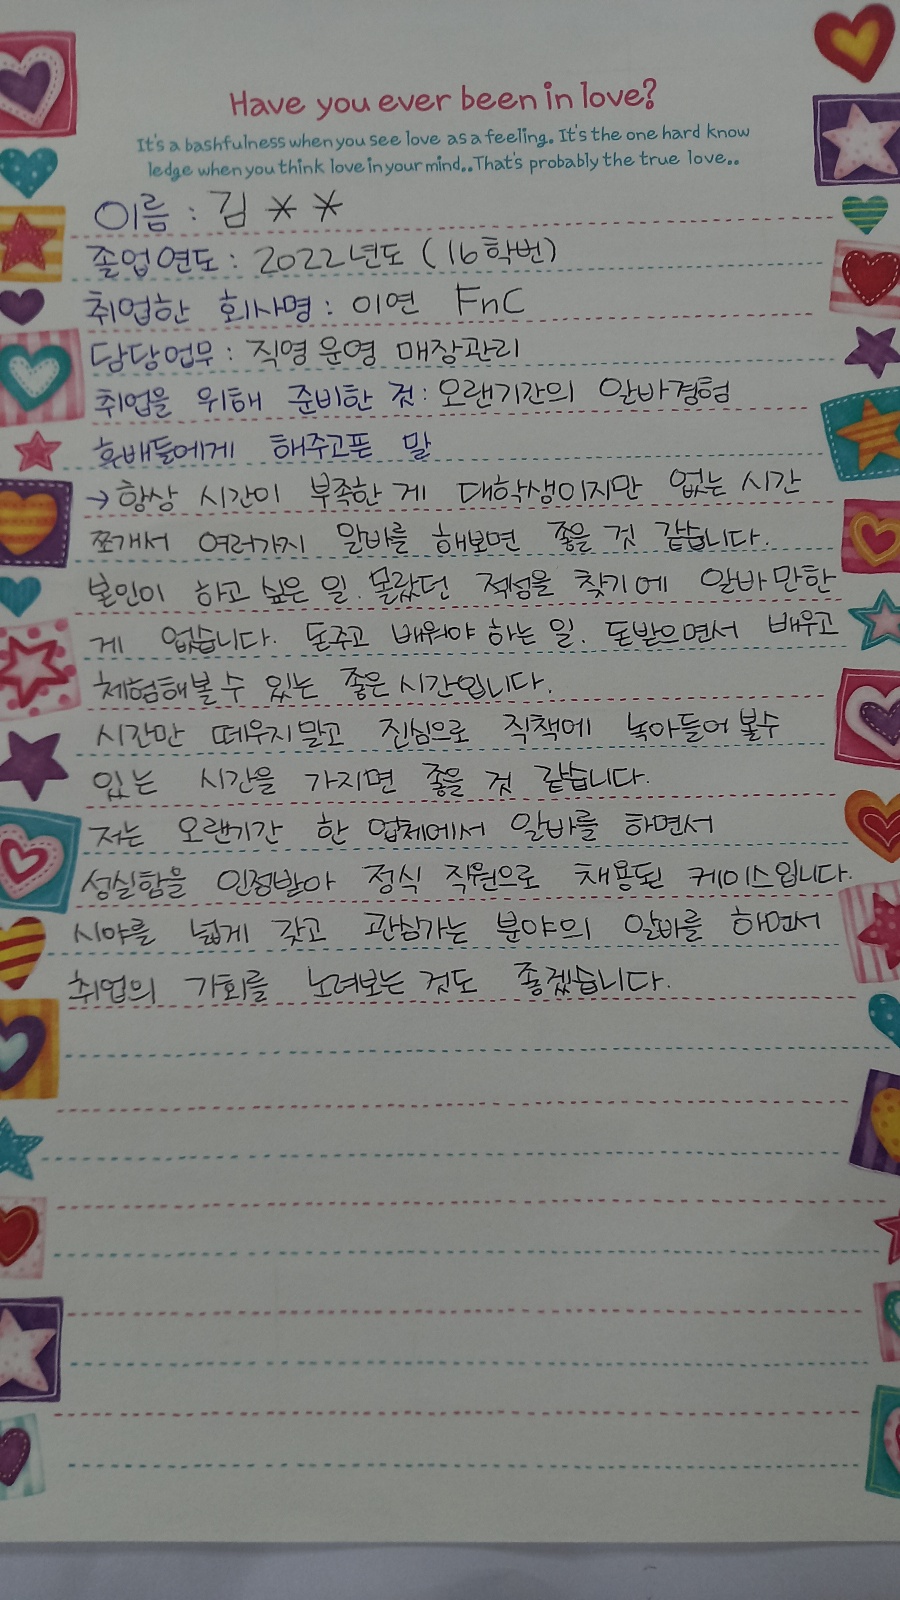 Have you ever been in love?
It's a bashfulness when you see love as a feeling. It's the one hard know
ledge when you think love in your mind.. That's probably the true love..
이름 : 김 * *
졸업연도 : 2022년도 (16학번)
취업한 회사명 : 이연 FnC
담당업무 : 직영운영 매장관리
취업을 위해 준비한 것 : 오랜기간의 알바경험
후배들에게 해주고픈 말
→ 항상 시간이 부족한게 대학생이지만 없는 시간
쪼개서 여러가지 알바를 해보면 좋을 것 같습니다.
본인이 하고 싶은 일. 몰랐던 적성을 찾기에 알바만한
게 없습니다. 돈주고 배워야 하는 일. 돈받으면서 배우고
체험해볼 수 있는 좋은 시간입니다.
시간만 떼우지말고 진심으로 직책에 녹아들어 볼수
있는 시간을 가지면 좋을 것 같습니다.
저는 오랜기간 한 업체에서 알바를 하면서
성실함을 인정받아 정식 직원으로 채용된 케이스입니다.
시야를 넓게 갖고 관심가는 분야의 알바를 하면서
취업의 기회를 노려보는 것도 좋겠습니다.